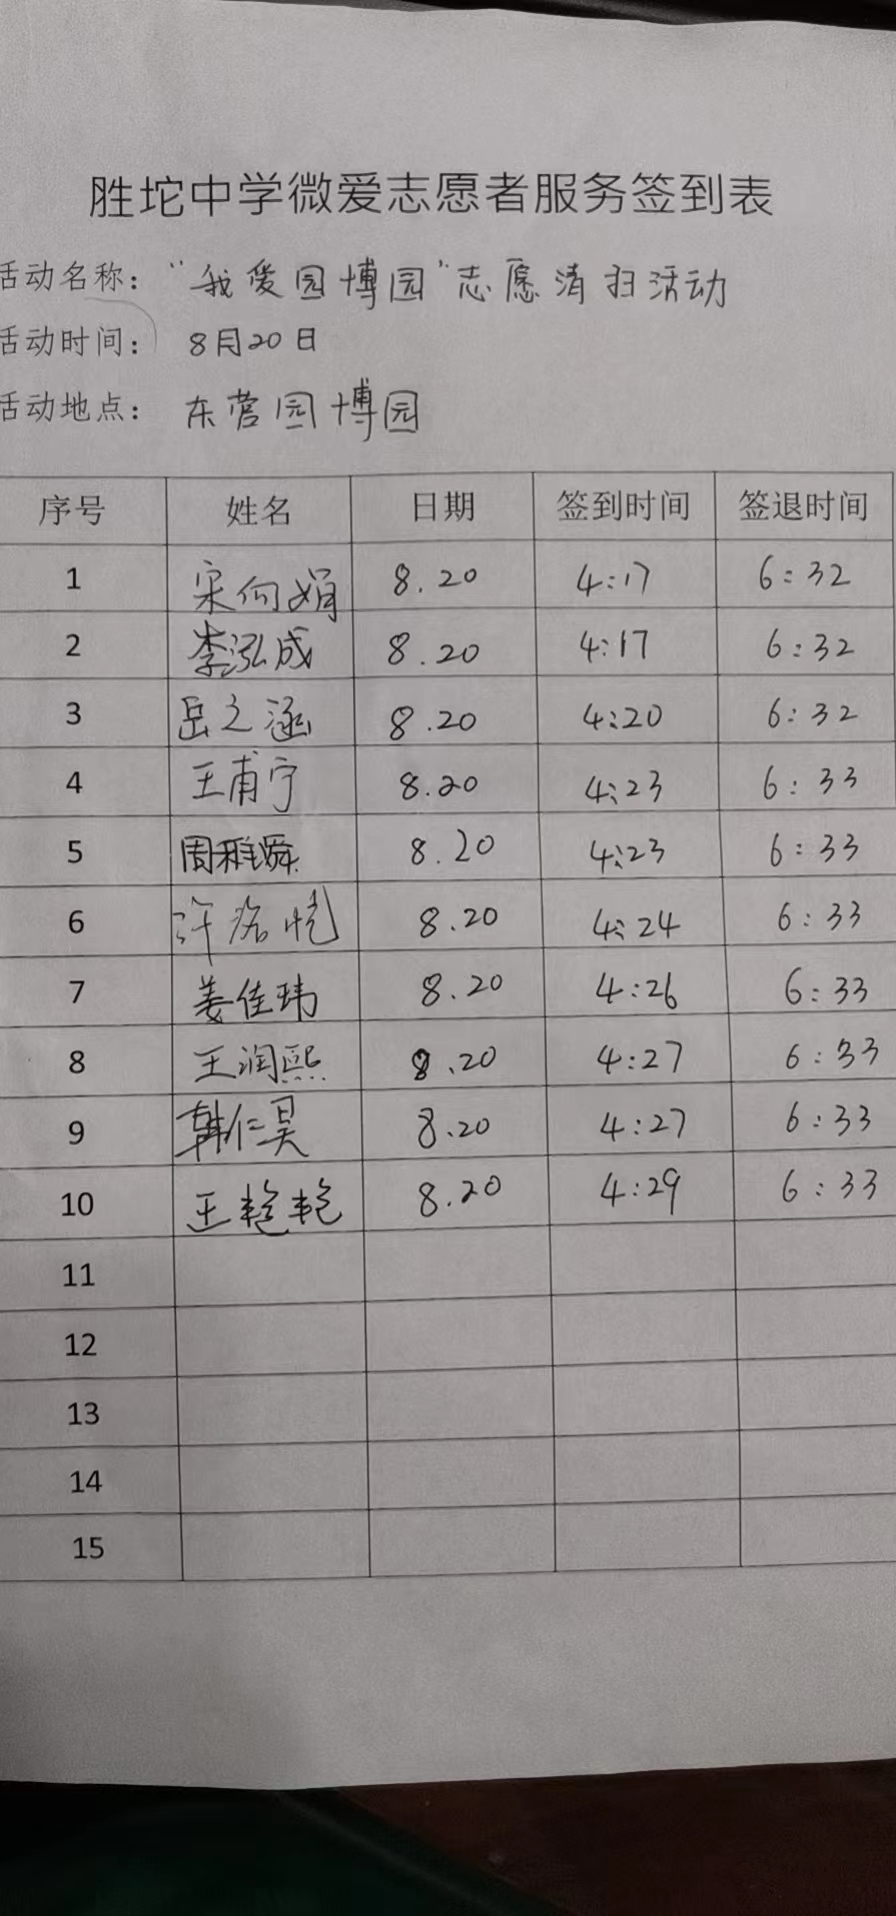 胜坨中学微爱志愿者服务签到表
活动名称：“我爱园博园”志愿清扫活动
活动时间：8月20日
活动地点：东营园博园
序号 姓名 日期 签到时间 签退时间
1 宋向娟 8.20 4:17 6:32
2 李泓成 8.20 4:17 6:32
3 岳之涵 8.20 4:20 6:32
4 王甫宁 8.20 4:23 6:33
5 周雅舜 8.20 4:23 6:33
6 许洺恺 8.20 4:24 6:33
7 姜佳玮 8.20 4:26 6:33
8 王润熙 8.20 4:27 6:33
9 韩仁昊 8.20 4:27 6:33
10 王艳艳 8.20 4:29 6:33
11
12
13
14
15